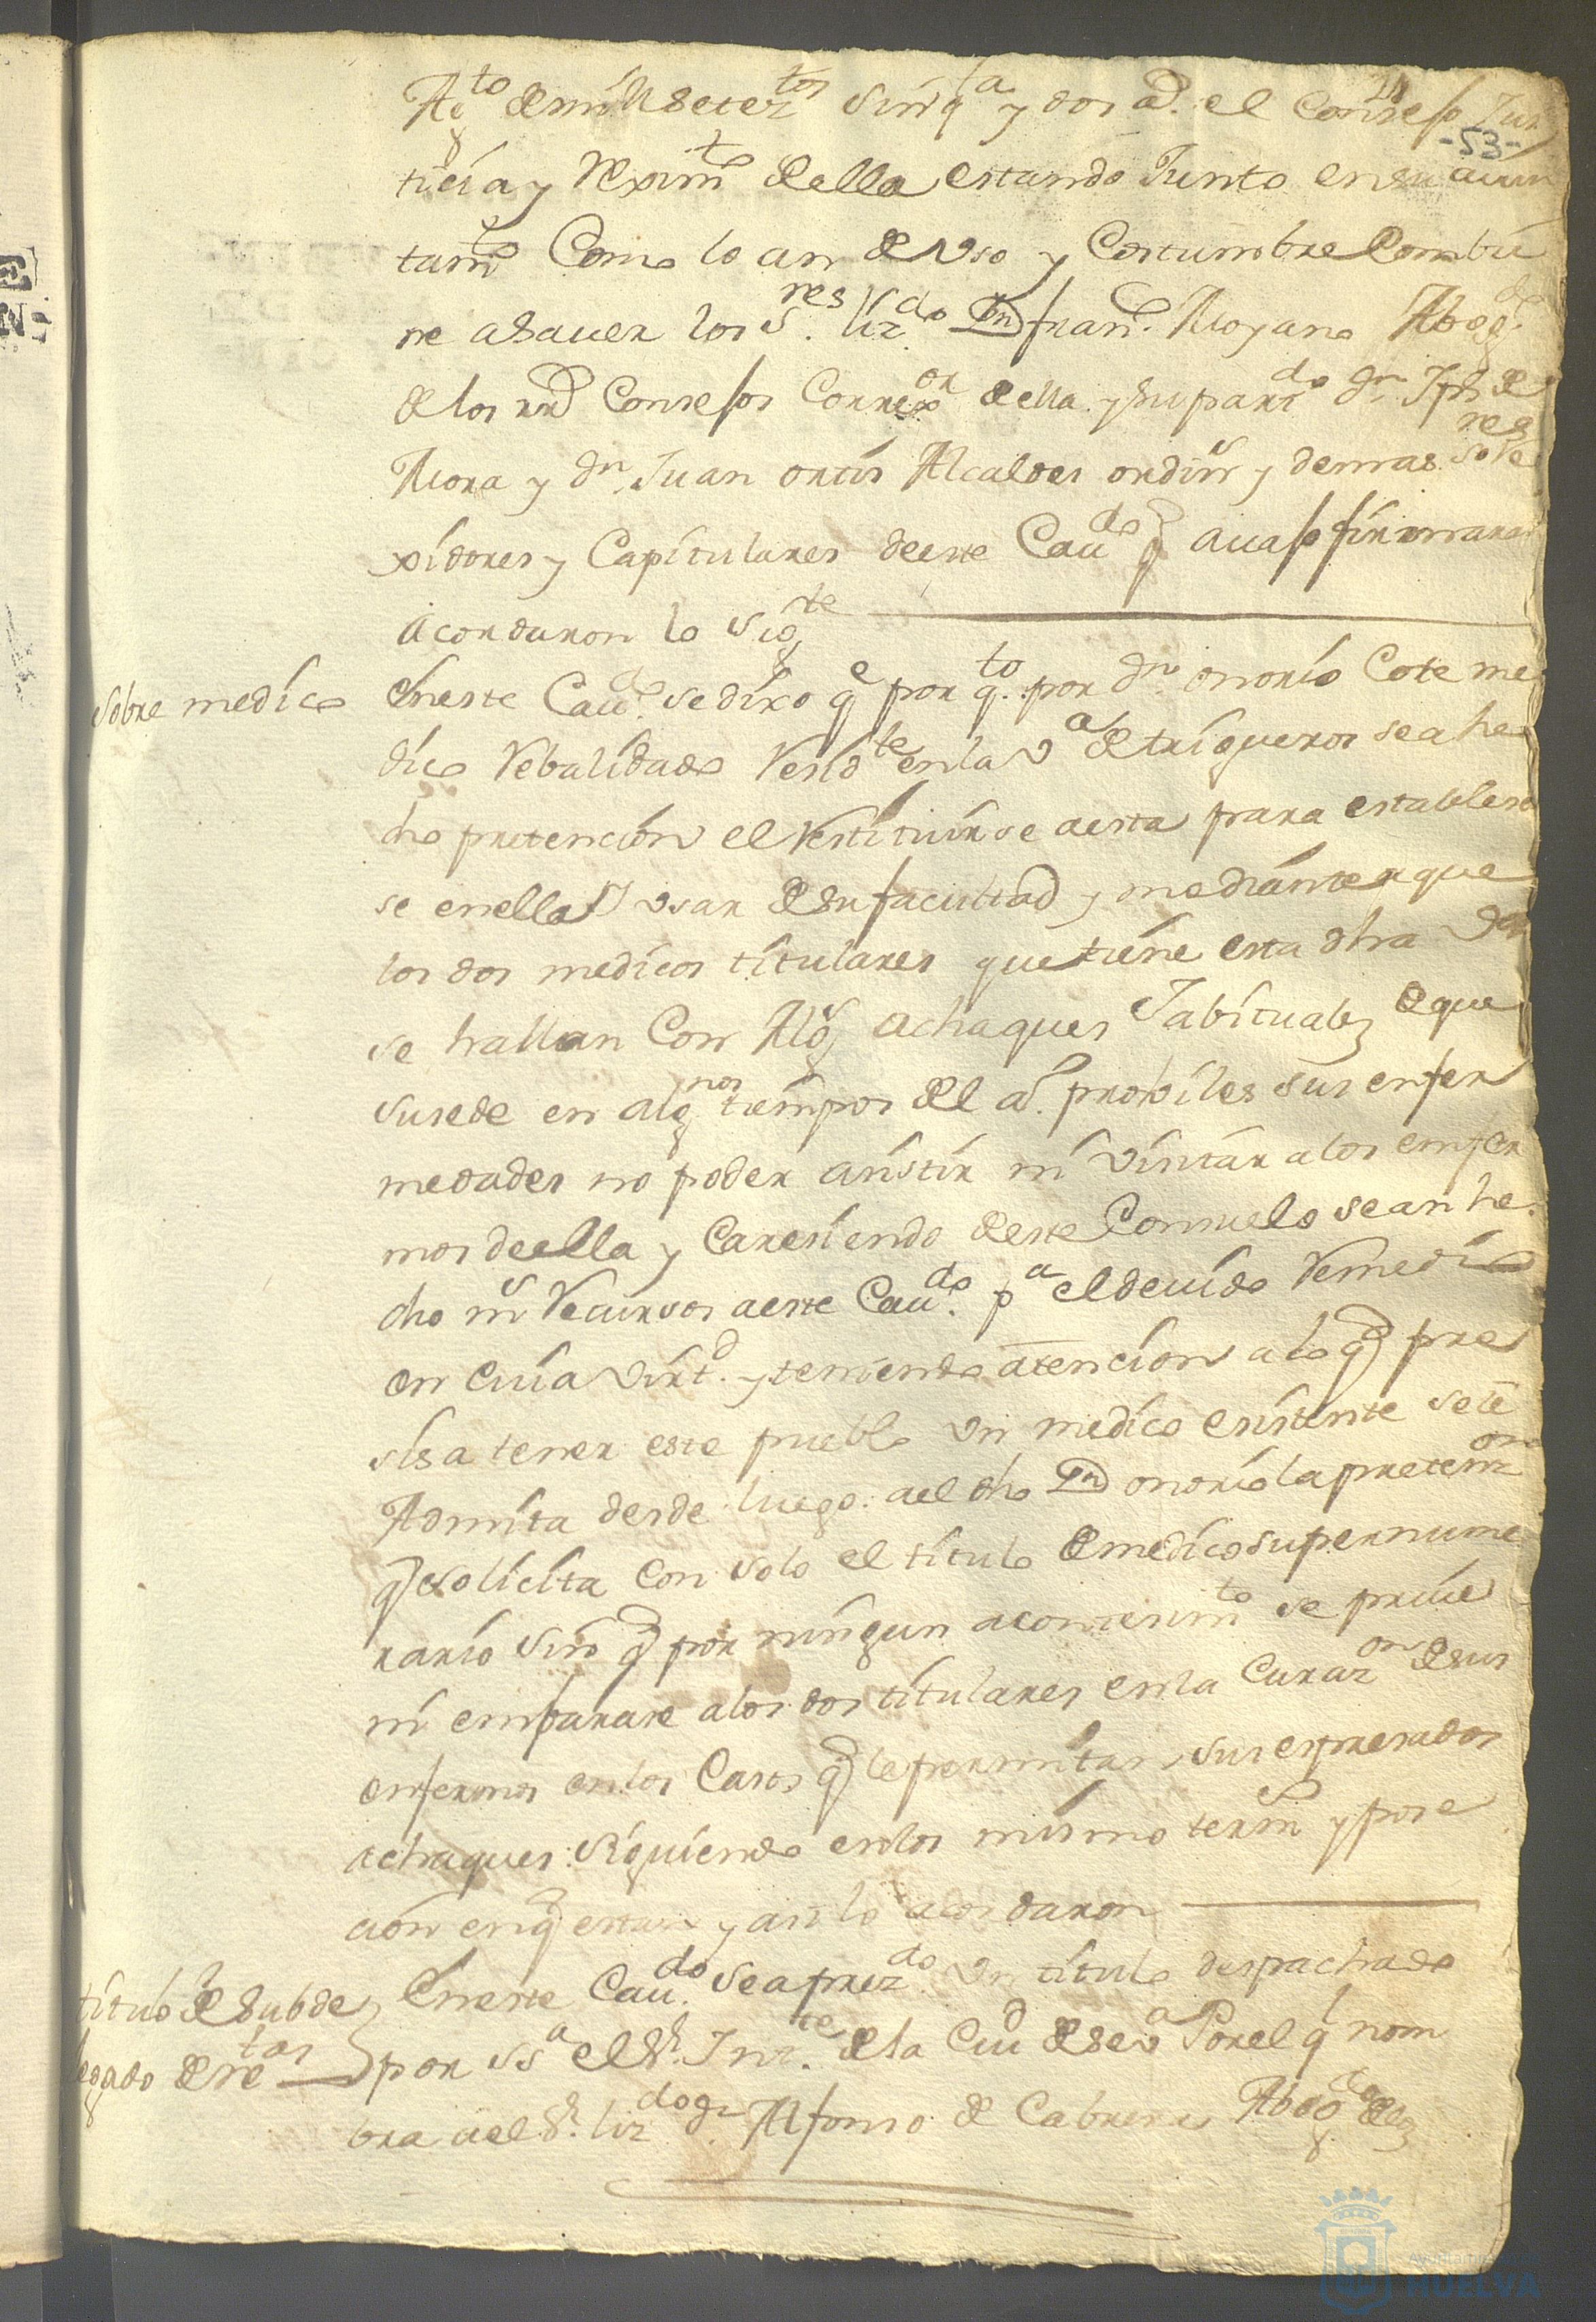 -53-
Agto de mill seteztos sinqta y dos as. el Consejo Jus
ticia y Reximto de ella estando Junto en su aiun
tamto Como lo an de vso y Costumbre Combie
ne a sauer los Sres lizdo Dn franco Moyano Abogdo
de los rrs Consejos Correxor de ella y su partdo dn Jph de
Mora y dn Juan ortis Alcaldes ordins y demas sores Re
xidores y Capitulares de este Caudo q auajo firmaran
Acordaron lo sigte
sobre medico
En este Caudo se dixo qe por qto por dn onorio Cote me
dico Rebalidado Residte en la va de trigueros se a he
cho pretencion el Restituirse a esta para estableser
se en ella y vsar de su facultad y mediante a que
los dos medicos titulares que tiene esta dha va
se hallan Con Algs achaques Jabituales de que
susede en algnos tiempos del ao. prolijles sus enfer
medades no poder asistir ni visitar a los enfer
mos de ella y Caresiendo de este Consuelo se an he
cho ms Recursos a este Caudo pa el deuido Remedio
en cuia virtd y teniendo atencion a lo q pre
sisa tener este pueblo vn medico existente se le
Admita desde luego a el dho Dn onorio la pretenzon
q solicita con solo el titulo de medico supernume
rario sin q por ningun acontesimto se priue
ni embarase a los dos titulares en la Curazon de sus
enfermos en los Casos q le permitan sus espresados
achaques siguiendo en los mismo terms y pose
cion en q estan y asi lo acordaron
titulo de subde
legado de retas
En este Caudo se a prezdo vn titulo despachado
por ssa el Sr. Inte de la Ciud de seva Por el q nom
bra a el Sr. lizdo dn Alfonso de Cabrera Abogdo de los
Ayuntamiento
HUELVA